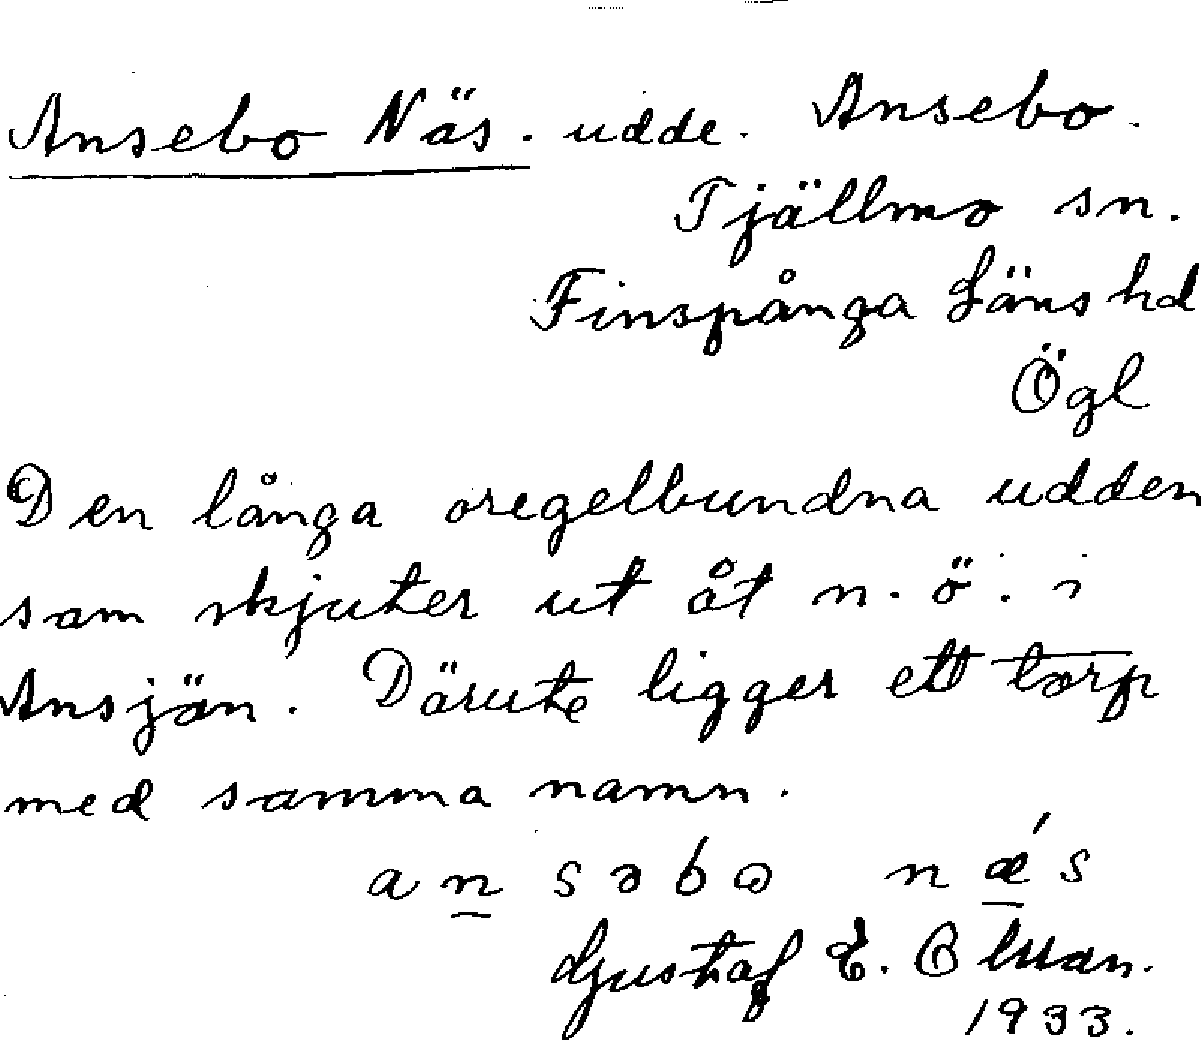 Ansebo Näs. udde. Ansebo.
Tjällmo sn.
Finspånga Läns hd
Ögl
Den långa oregelbundna udden
som skjuter ut åt n.ö. i
Ansjön. Därute ligger ett torp
med samma namn.
ansəbo næ´s
Gustaf E. Olman.
1933.